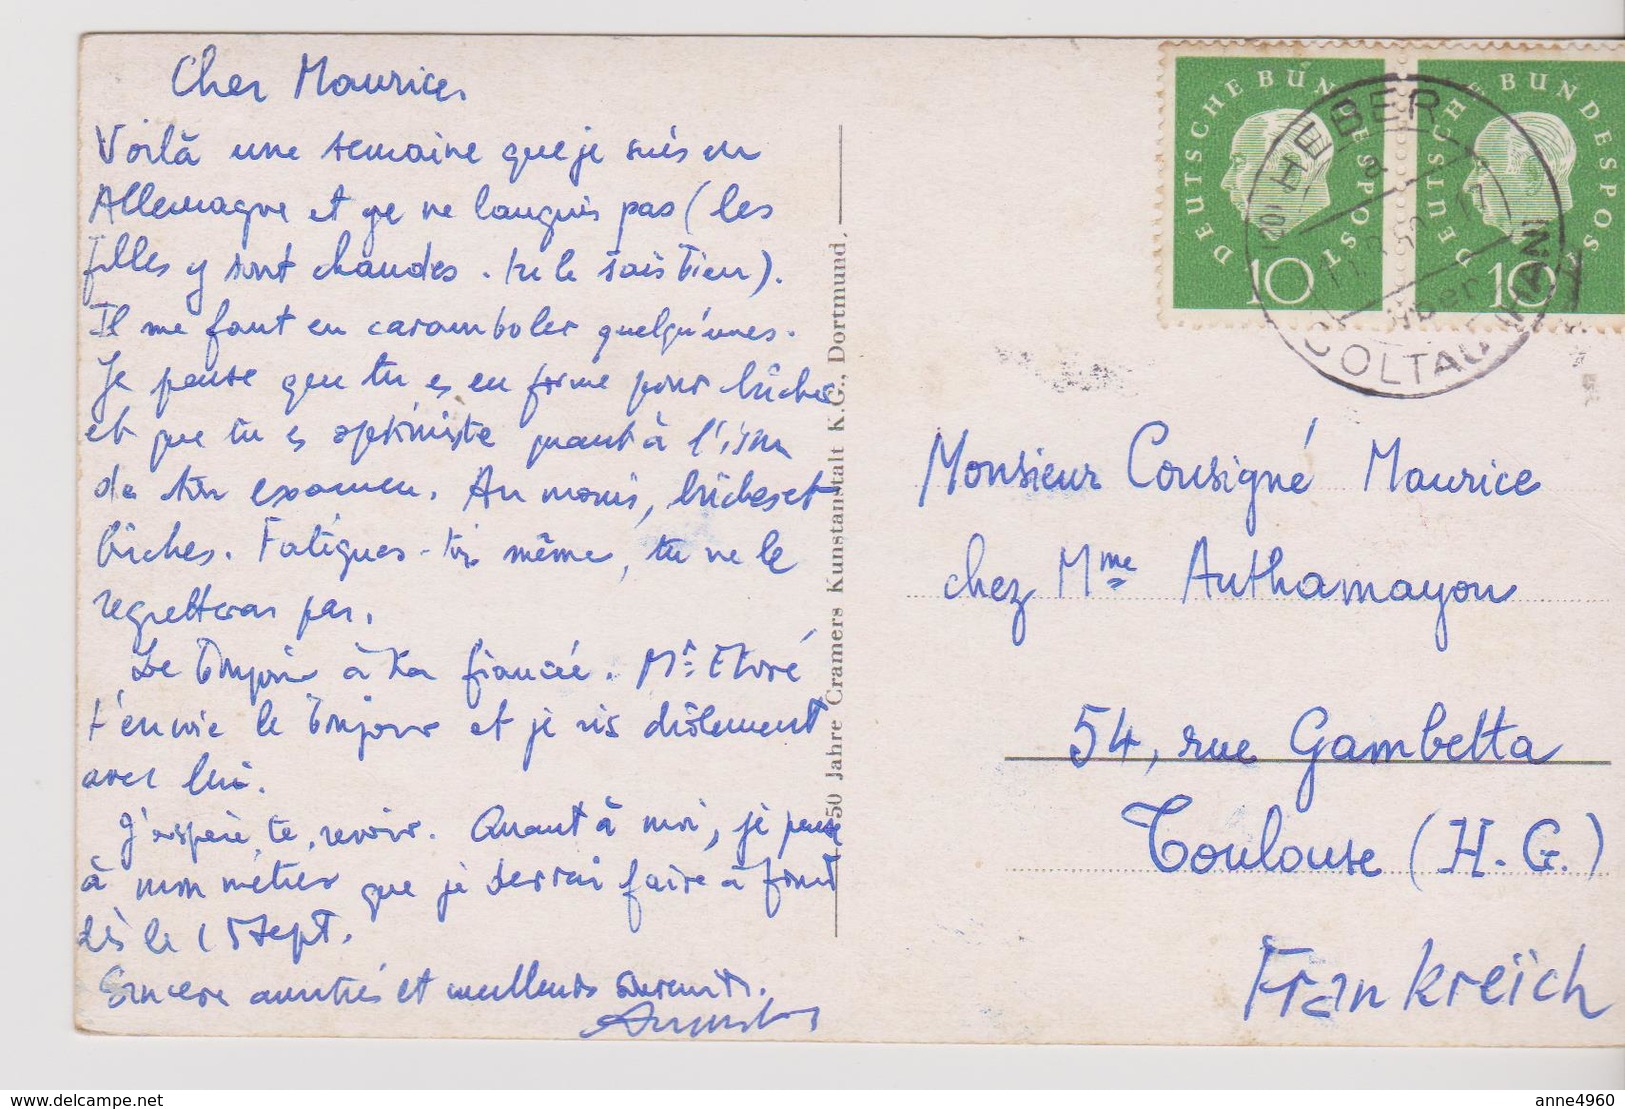 Cher Maurice,
Voilà une semaine que je suis en
Allemagne et je ne languis pas (les
filles y sont chaudes. tu le sais bien).
Il me faut en caramboler quelqu'unes.
Je pense que tu es en forme pour bûcher
et que tu es optimiste quant à l'issu
de ton examen. Au moins, bûches et
bûches. Fatigues-toi même, tu ne le
regretteras pas.
Le bonjour à ta fiancée. Mr
t'envoie le bonjour et je ris drôlement
avec lui.
J'espère te revoir. Quant à moi, je pense
à mon métier que je devrai faire à fond
dès le 15 sept.
Sincère amitiés et meilleurs souvenirs.
50 Jahre Cramers Kunstanstalt K.G., Dortmund,
DEUTSCHE BUNDESPOST
10
DEUTSCHE BUNDESPOS
10
Monsieur Consigné Maurice
chez Mme Authamayou
54, rue Gambetta
Toulouse (H.G.)
Frankreïch
https://www.delcampe.net
anne4960